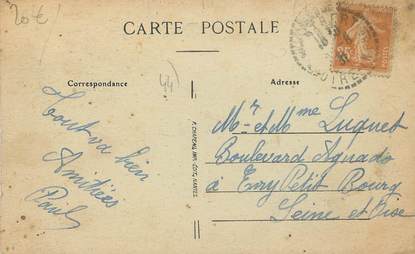 20€
CARTE POSTALE
Correspondance
44)
Adresse
25
Tout va bien
Amitiées
Paul
Mr et Mme Luquet
Boulevard Aguado
à Evry Petit Bourg
Seine et Oise